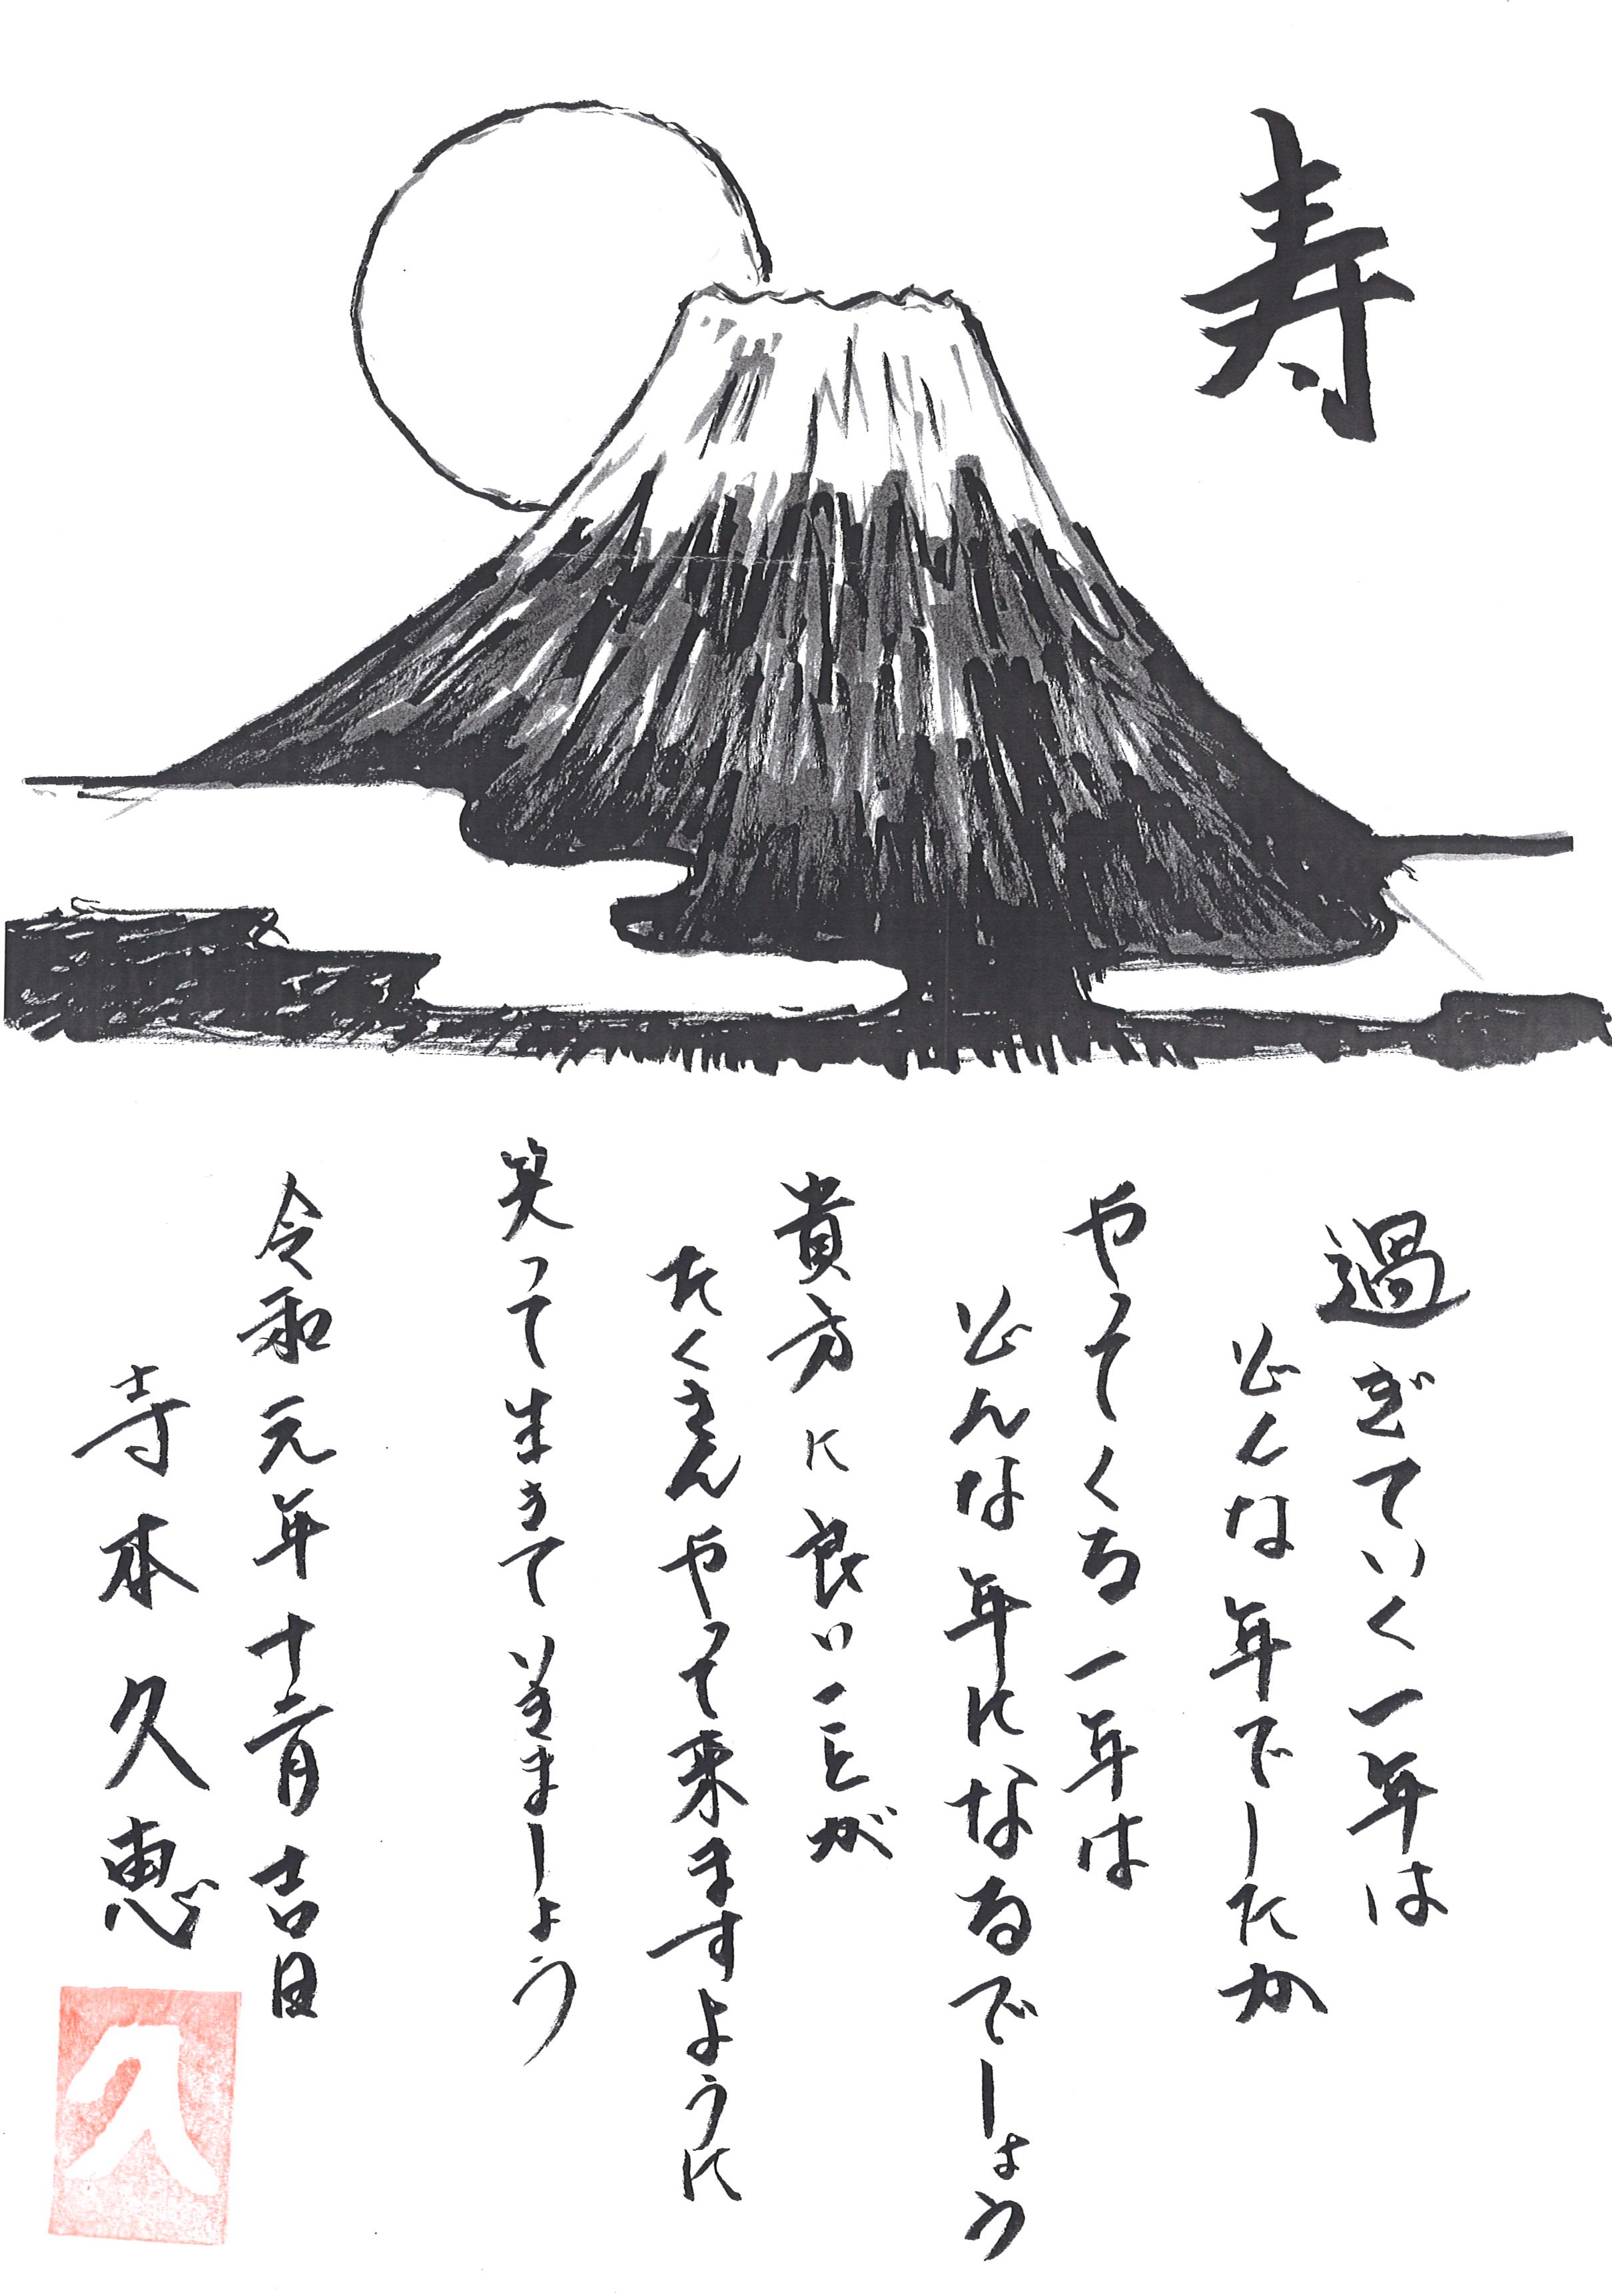 寿
過ぎていく一年は
どんな年でしたか
やってくる一年は
どんな年になるでしょう
貴方に良いことが
たくさんやって来ますように
笑って生きて きましょう
令和元年十二月吉日
寺本久恵
久